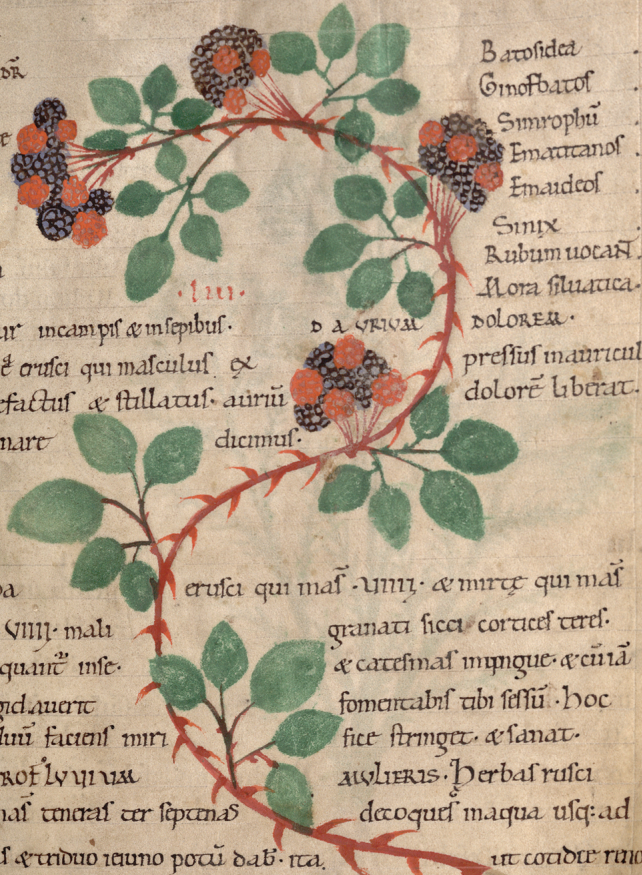 Batosidea
Ginosbatos
Simrophū
Ematitanos
Emaideos
Sinix
Rubum uocant̄.
Mora siluatica.
.IIII.
incampis & insepibus. DAURIUM DOLOREM.
erusci qui masculus ex pressus inauricul
efactus & stillatus. auriū dolorē liberat.
nare dicimus.
erusci qui mas̄ .VIIII. & mirtę qui mas̄
VIIII. mali granati sicci cortices teres.
quant̄ inse. & catesmas inpingue. & cū iā
fomentabis tibi sessū. Hoc
faciens miri fice stringet. & sanat.
MULIERIS. Herbas rusci
teneras ter septenas decoques inaqua usq: ad
& triduo ieiuno potū dab̄. ita. ut cotidie reno